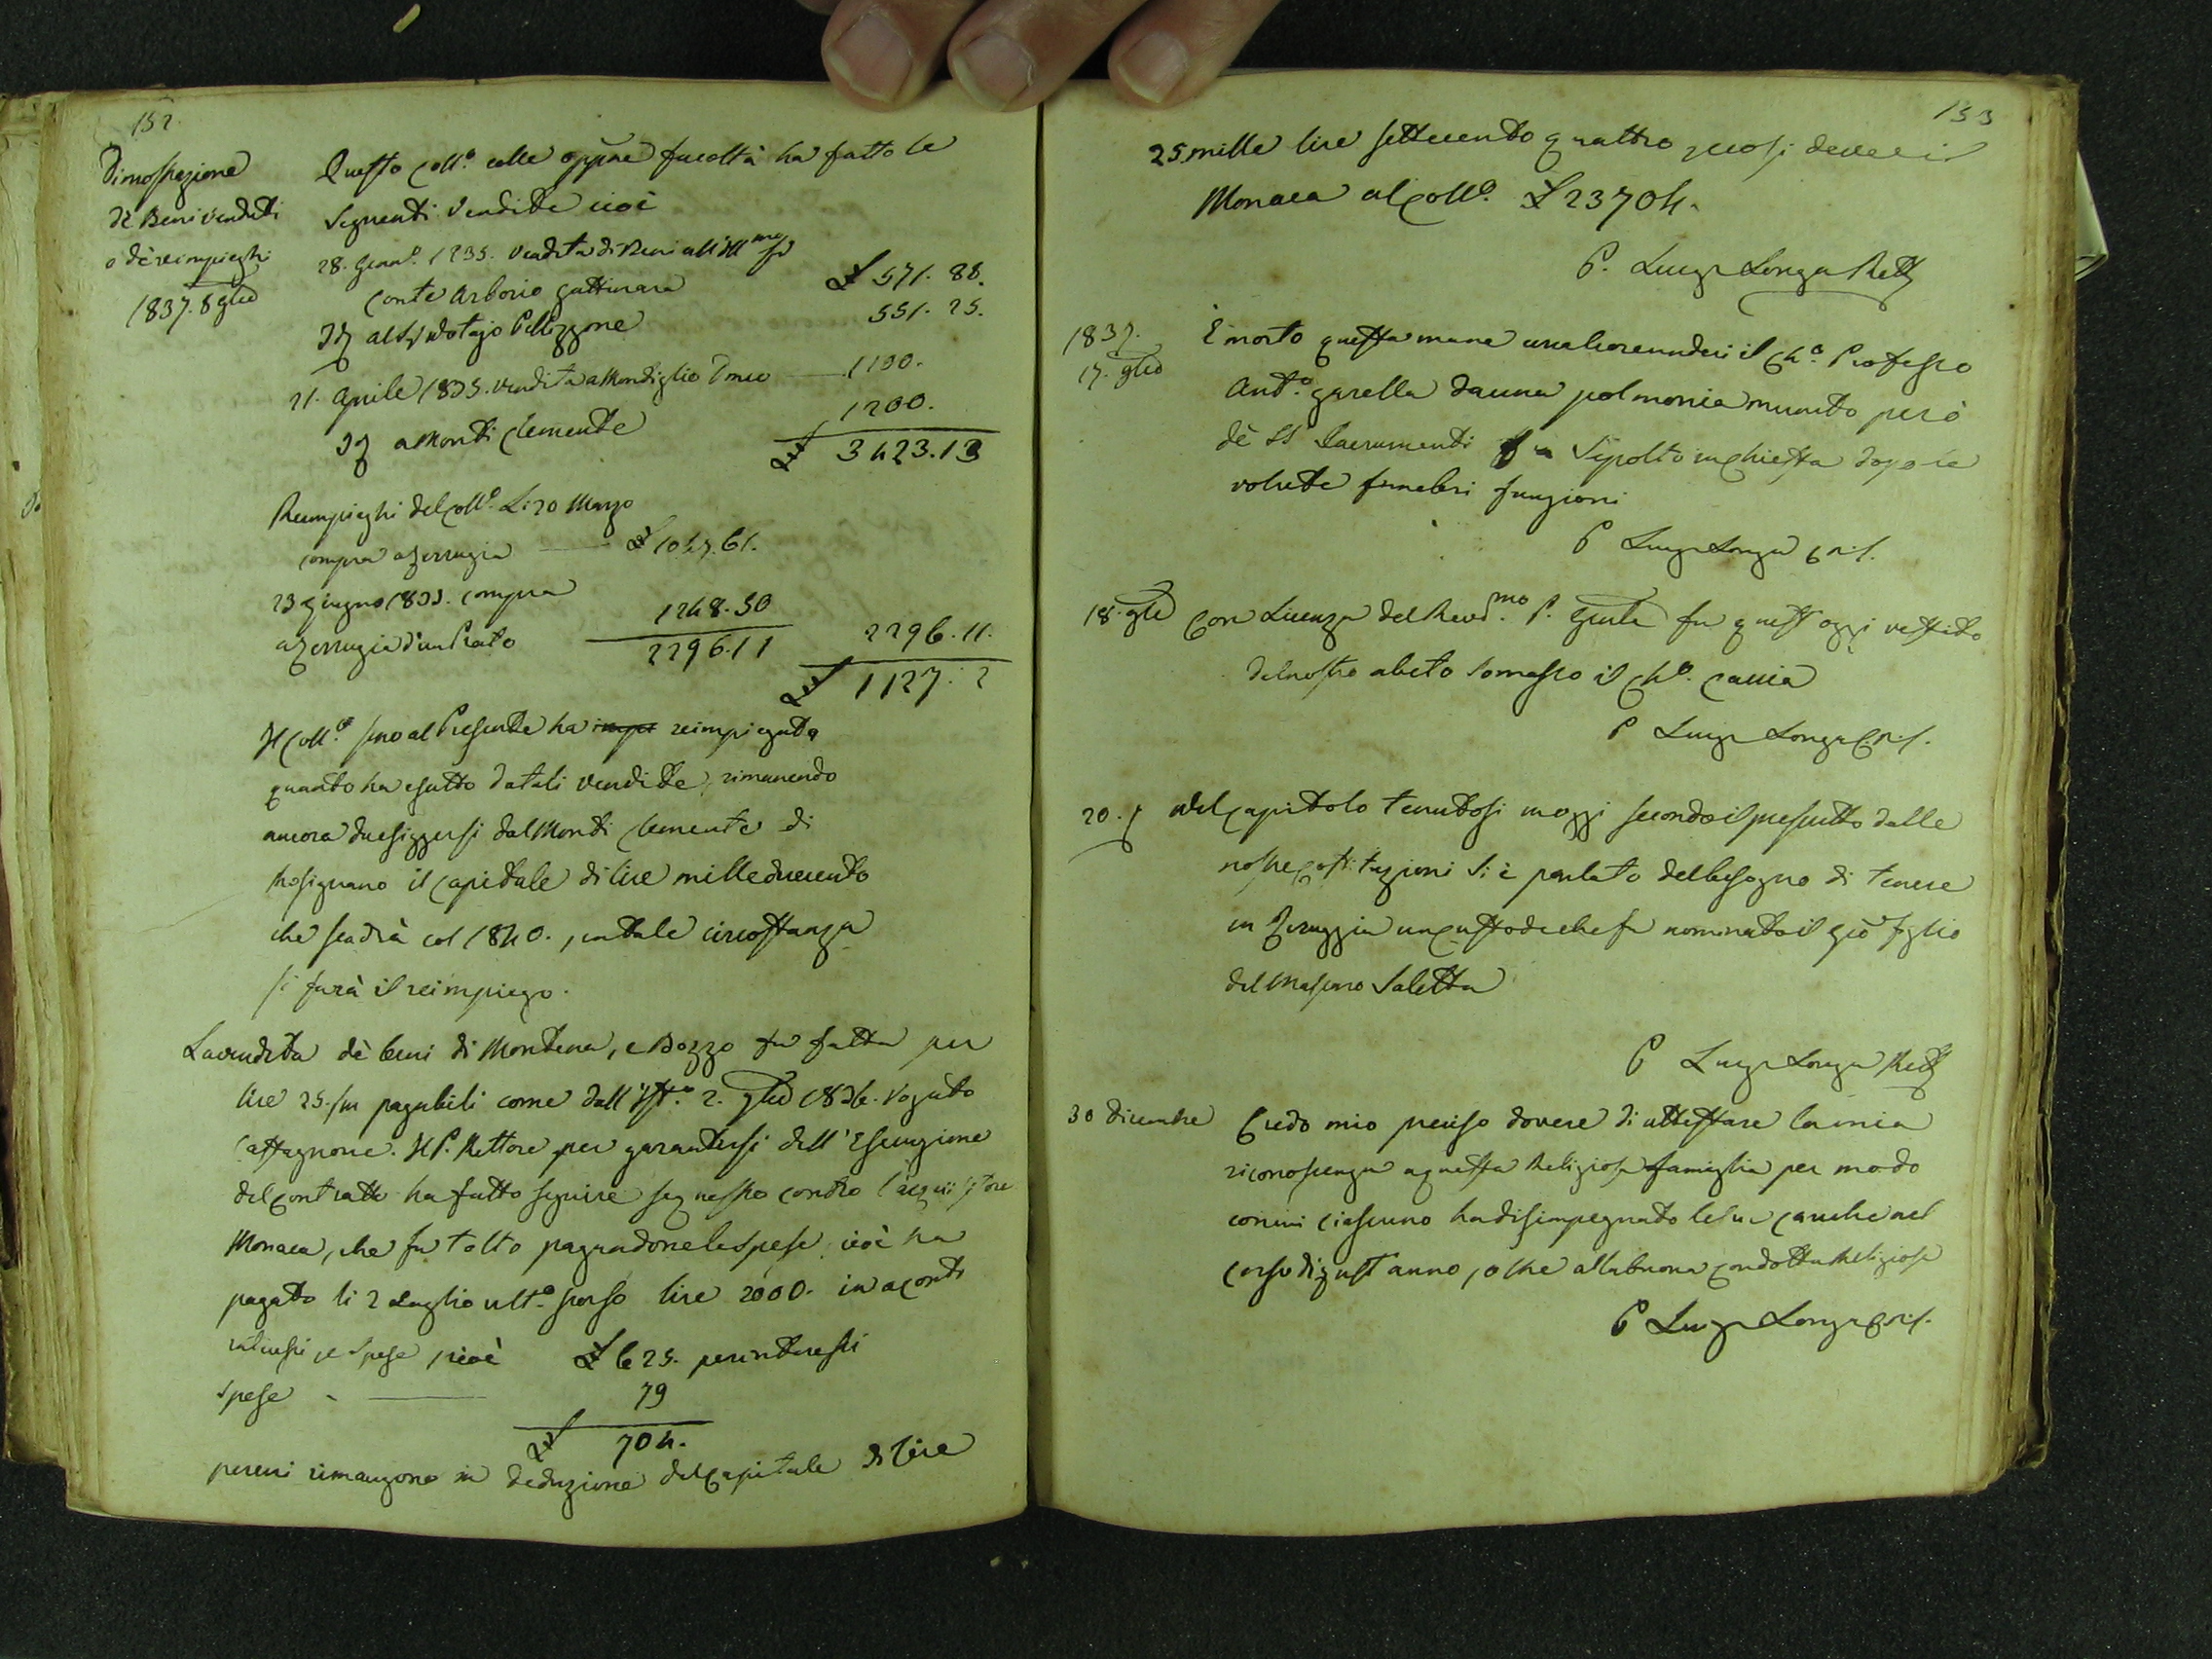 152.
Dimostrazione
de' Beni venduti
o de' reimpieghi
1837. 8 9bre
Questo Coll.o colle oppne facoltà ha fatto le
seguenti vendite cioè
28. Genn.o 1835. vendita di Beni all'Ill.mo Sr
Conte Arborio Gattinara £ 571. 88.
Id al Sr Notajo Pellizzone 551. 25.
21. Aprile 1835. vendita a Mondiglio 1100.
Id a Monti Clemente 1200.
£ 3423.13
Reimpieghi del Coll.o Li 20 Marzo
compra a Zerruzia £ 1047.61.
23 Giugno 1835. compra
a Zerruzia d'un Prato 1248.50
2296.11 2296.11.
£ 1127. 2
Il Coll.o sino al Presente ha reimpiegato
quanto ha esatto da tali vendite, rimanendo
ancora da esiggersi dal Monti Clemente di
Rosignano il Capitale di lire mille duecento
che scadrà col 1840., in tale circostanza
si farà il reimpiego.
La vendita de' beni di Mondena, e Bozzo fu fatta per
lire 25/m pagabili come dall'Ist.o 2. 9bre 1836. rogato
Castagnone. Il P. Rettore per garantirsi dell'Esecuzione
del Contratto ha fatto seguire sequestro contro l'acquisitore
Monaca, che fu tolto pagandone le spese, cioè ha
pagato li 2 Luglio ult.o scorso lire 2000. in aconto
interessi e spese, cioè £ 625. per interessi
spese 79
£ 704.
per cui rimangono in deduzione del Capitale di lire
153
25 mille lire settecento quattro, sicchè deve il
Monaca al Coll.o £ 23704.
P. Luigi Longa Rett
1837.
17. 9bre
È morto questa mane alle ore undeci il Ch.o Professo
Ant.o Garella da una polmonia munito però
de' SS Sacramenti fu sepolto in chiesta dopo le
volute funebri funzioni
P Luigi Longa C.R.S.
18. 9bre Con Licenza del Revd.mo P. Gnle fu quest'oggi vestito
del nostro abito Somasco il Ch.o Caccia
P Luigi Longa C.R.S.
20. Nel Capitolo tenutosi in oggi secondo il prescritto dalle
nostre Costituzioni si è parlato del bisogno di tenere
in Zeruggia un Custode che fu nominato il Gio figlio
del Massaro Saletta
P Luigi Longa Rett
30 Dicembre Credo mio preciso dovere di attestare la mia
riconoscenza a questa Religiosa famiglia per modo
con cui Ciascuno ha disimpegnato le sue Cariche nel
Corso di quest'anno, oltre alla buona Condotta Religiosa
P Luigi Longa C.R.S.